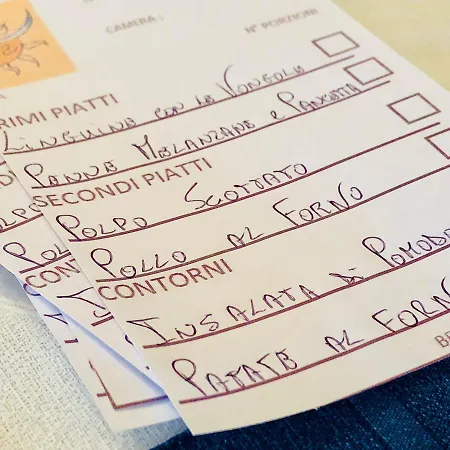 CAMERA : N° PORZIONI
RIMI PIATTI
LINGUINE CON LE VONGOLE
PENNE MELANZANE E PANCETTA
SECONDI PIATTI
POLPO SCOTTATO
POLLO AL FORNO
CONTORNI
INSALATA DI POMODO
PATATE AL FORNO
BE